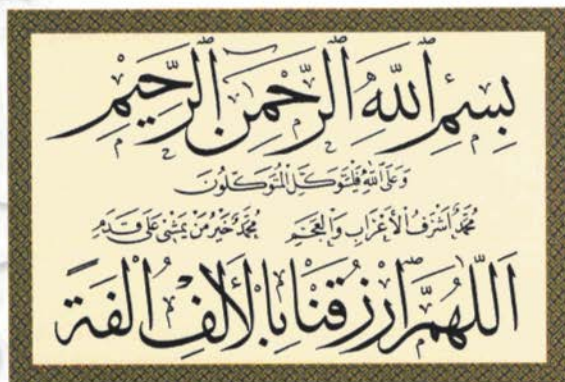 بِسْمِ اللّٰهِ الرَّحْمٰنِ الرَّحِيْمِ
وَعَلَى اللّٰهِ فَلْيَتَوَكَّلِ الْمُتَوَكِّلُوْنَ
مُحَمَّدٌ اَشْرَفُ الْاَعْرَابِ وَالْعَجَمِ مُحَمَّدٌ خَيْرُ مَنْ يَمْشِيْ عَلٰى قَدَمِ
اَللّٰهُمَّ ارْزُقْنَا بِالْاَلِفِ اُلْفَةً